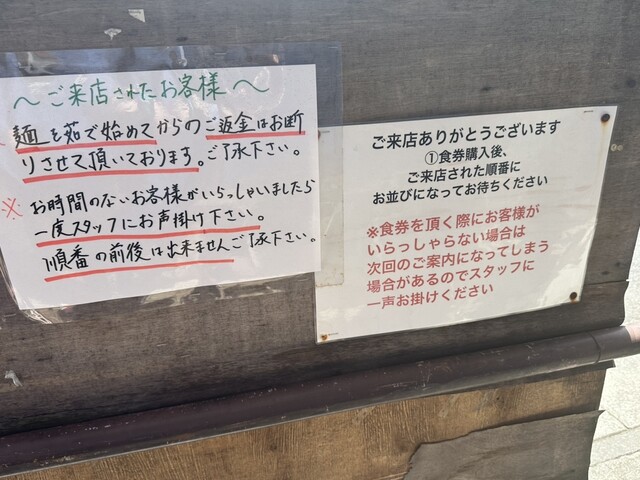 ～ご来店されたお客様～
麺を茹で始めてからのご返金はお断
りさせて頂いております。ご了承下さい。
※お時間のないお客様がいらっしゃいましたら
一度スタッフにお声掛け下さい。
順番の前後は出来ませんご了承下さい。
ご来店ありがとうございます
①食券購入後、
ご来店された順番に
お並びになってお待ちください
※食券を頂く際にお客様が
いらっしゃらない場合は
次回のご案内になってしまう
場合があるのでスタッフに
一声お掛けください